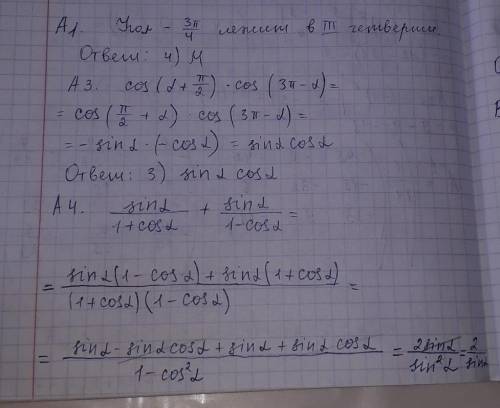 А1. Угол - 3π/4 лежит в III четверти
Ответ: 4) М
А3. cos(α + π/2) · cos(3π - α) =
= cos(π/2 + α) · cos(3π - α) =
= - sinα · (-cosα) = sinα cosα
Ответ: 3) sinα cosα
А4. sinα/(1+cosα) + sinα/(1-cosα) =
= (sinα(1 - cosα) + sinα(1 + cosα))/((1+cosα)(1 - cosα)) =
= (sinα - sinα cosα + sinα + sinα cosα)/(1 - cos²α) = 2sinα/sin²α = 2/sinα